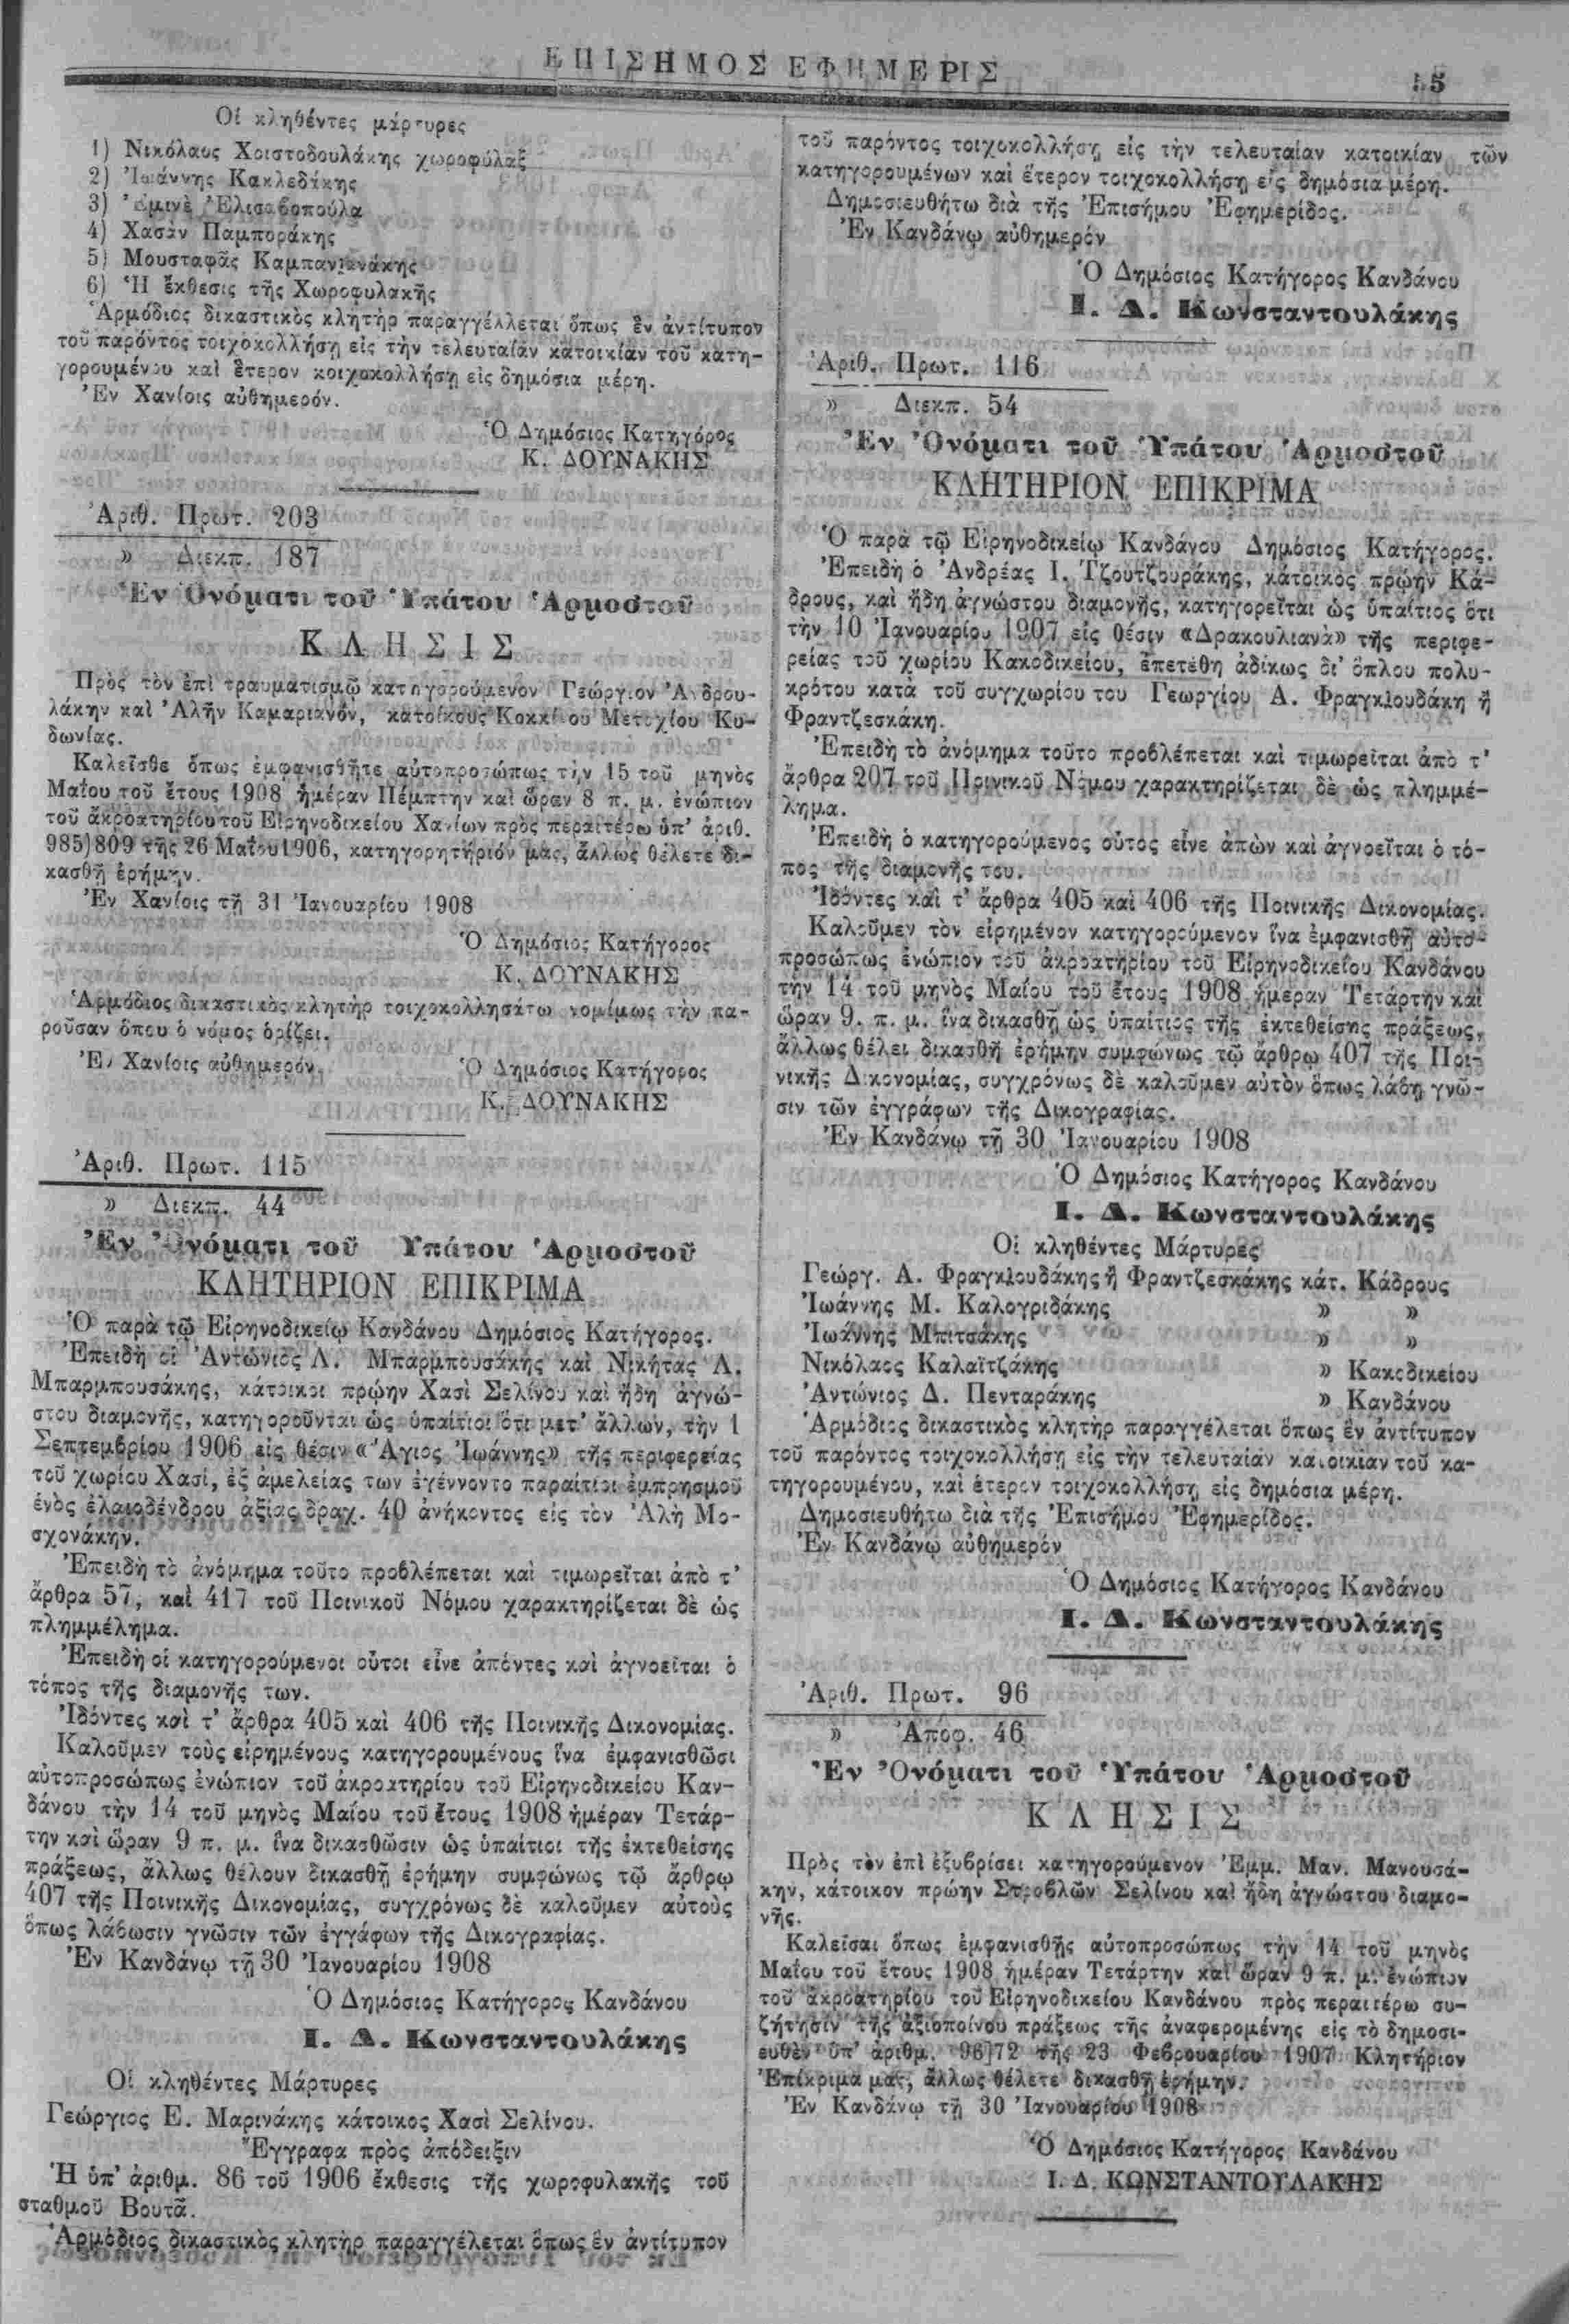 ΕΠΙΣΗΜΟΣ ΕΦΗΜΕΡΙΣ
55
Οἱ κληθέντες μάρτυρες
1) Νικόλαος Χριστοδουλάκης χωροφύλαξ
2) Ἰωάννης Κακλεδάκης
3) Ἐμινὲ Ἐλισαβοπούλα
4) Χασὰν Παμποράκης
5) Μουσταφᾶς Καμπανιανάκης
6) Ἡ ἔκθεσις τῆς Χωροφυλακῆς
Ἁρμόδιος δικαστικὸς κλητὴρ παραγγέλλεται ὅπως ἓν ἀντίτυπον
τοῦ παρόντος τοιχοκολλήσῃ εἰς τὴν τελευταίαν κατοικίαν τοῦ κατη-
γορουμένου καὶ ἕτερον κοιχοκολλήσῃ εἰς δημόσια μέρη.
Ἐν Χανίοις αὐθημερόν.
Ὁ Δημόσιος Κατήγορος
Κ. ΔΟΥΝΑΚΗΣ
Ἀριθ. Πρωτ. 203
» Διεκπ. 187
Ἐν Ὀνόματι τοῦ Ὑπάτου Ἁρμοστοῦ
ΚΛΗΣΙΣ
Πρὸς τὸν ἐπὶ τραυματισμῷ κατηγορούμενον Γεώργιον Ἀνδρου-
λάκην καὶ Ἀλῆν Καμαριανόν, κατοίκους Κοκκίνου Μετοχίου Κυ-
δωνίας.
Καλεῖσθε ὅπως ἐμφανισθῆτε αὐτοπροσώπως τὴν 15 τοῦ μηνὸς
Μαΐου τοῦ ἔτους 1908 ἡμέραν Πέμπτην καὶ ὥραν 8 π. μ. ἐνώπιον
τοῦ ἀκροατηρίου τοῦ Εἰρηνοδικείου Χανίων πρὸς περαιτέρω ὑπ' ἀριθ.
985)809 τῆς 26 Μαΐου 1906, κατηγορητήριόν μας, ἄλλως θέλετε δι-
κασθῆ ἐρήμην.
Ἐν Χανίοις τῇ 31 Ἰανουαρίου 1908
Ὁ Δημόσιος Κατήγορος
Κ. ΔΟΥΝΑΚΗΣ
Ἁρμόδιος δικαστικὸς κλητὴρ τοιχοκολλησάτω νομίμως τὴν πα-
ροῦσαν ὅπου ὁ νόμος ὁρίζει.
Ἐν Χανίοις αὐθημερόν.
Ὁ Δημόσιος Κατήγορος
Κ. ΔΟΥΝΑΚΗΣ
Ἀριθ. Πρωτ. 115
» Διεκπ. 44
Ἐν Ὀνόματι τοῦ Ὑπάτου Ἁρμοστοῦ
ΚΛΗΤΗΡΙΟΝ ΕΠΙΚΡΙΜΑ
Ὁ παρὰ τῷ Εἰρηνοδικείῳ Κανδάνου Δημόσιος Κατήγορος.
Ἐπειδὴ οἱ Ἀντώνιος Λ. Μπαρμπουσάκης καὶ Νικήτας Λ.
Μπαρμπουσάκης, κάτοικοι πρῴην Χασὶ Σελίνου καὶ ἤδη ἀγνώ-
στου διαμονῆς, κατηγοροῦνται ὡς ὑπαίτιοι ὅτι μετ' ἄλλων, τὴν 1
Σεπτεμβρίου 1906 εἰς θέσιν «Ἅγιος Ἰωάννης» τῆς περιφερείας
τοῦ χωρίου Χασί, ἐξ ἀμελείας των ἐγέννοντο παραίτιοι ἐμπρησμοῦ
ἑνὸς ἐλαιοδένδρου ἀξίας δραχ. 40 ἀνήκοντος εἰς τὸν Ἀλὴ Μο-
σχονάκην.
Ἐπειδὴ τὸ ἀνόμημα τοῦτο προβλέπεται καὶ τιμωρεῖται ἀπὸ τ'
ἄρθρα 57, καὶ 417 τοῦ Ποινικοῦ Νόμου χαρακτηρίζεται δὲ ὡς
πλημμέλημα.
Ἐπειδὴ οἱ κατηγορούμενοι οὗτοι εἶνε ἀπόντες καὶ ἀγνοεῖται ὁ
τόπος τῆς διαμονῆς των.
Ἰδόντες καὶ τ' ἄρθρα 405 καὶ 406 τῆς Ποινικῆς Δικονομίας.
Καλοῦμεν τοὺς εἰρημένους κατηγορουμένους ἵνα ἐμφανισθῶσι
αὐτοπροσώπως ἐνώπιον τοῦ ἀκροατηρίου τοῦ Εἰρηνοδικείου Καν-
δάνου τὴν 14 τοῦ μηνὸς Μαΐου τοῦ ἔτους 1908 ἡμέραν Τετάρ-
την καὶ ὥραν 9 π. μ. ἵνα δικασθῶσιν ὡς ὑπαίτιοι τῆς ἐκτεθείσης
πράξεως, ἄλλως θέλουν δικασθῆ ἐρήμην συμφώνως τῷ ἄρθρῳ
407 τῆς Ποινικῆς Δικονομίας, συγχρόνως δὲ καλοῦμεν αὐτοὺς
ὅπως λάβωσιν γνῶσιν τῶν ἐγγάφων τῆς Δικογραφίας.
Ἐν Κανδάνῳ τῇ 30 Ἰανουαρίου 1908
Ὁ Δημόσιος Κατήγορος Κανδάνου
Ι. Δ. Κωνσταντουλάκης
Οἱ κληθέντες Μάρτυρες
Γεώργιος Ε. Μαρινάκης κάτοικος Χασὶ Σελίνου.
Ἔγγραφα πρὸς ἀπόδειξιν
Ἡ ὑπ' ἀριθμ. 86 τοῦ 1906 ἔκθεσις τῆς χωροφυλακῆς τοῦ
σταθμοῦ Βουτᾶ.
Ἁρμόδιος δικαστικὸς κλητὴρ παραγγέλεται ὅπως ἓν ἀντίτυπον
τοῦ παρόντος τοιχοκολλήσῃ εἰς τὴν τελευταίαν κατοικίαν τῶν
κατηγορουμένων καὶ ἕτερον τοιχοκολλήσῃ εἰς δημόσια μέρη.
Δημοσιευθήτω διὰ τῆς Ἐπισήμου Ἐφημερίδος.
Ἐν Κανδάνῳ αὐθημερόν
Ὁ Δημόσιος Κατήγορος Κανδάνου
Ι. Δ. Κωνσταντουλάκης
Ἀριθ. Πρωτ. 116
» Διεκπ. 54
Ἐν Ὀνόματι τοῦ Ὑπάτου Ἁρμοστοῦ
ΚΛΗΤΗΡΙΟΝ ΕΠΙΚΡΙΜΑ
Ὁ παρὰ τῷ Εἰρηνοδικείῳ Κανδάνου Δημόσιος Κατήγορος.
Ἐπειδὴ ὁ Ἀνδρέας Ι. Τζουτζουράκης, κάτοικος πρῴην Κά-
δρους, καὶ ἤδη ἀγνώστου διαμονῆς, κατηγορεῖται ὡς ὑπαίτιος ὅτι
τὴν 10 Ἰανουαρίου 1907 εἰς θέσιν «Δρακουλιανὰ» τῆς περιφε-
ρείας τοῦ χωρίου Κακοδικείου, ἐπετέθη ἀδίκως δι' ὅπλου πολυ-
κρότου κατὰ τοῦ συγχωρίου του Γεωργίου Α. Φραγκιουδάκη ἢ
Φραντζεσκάκη.
Ἐπειδὴ τὸ ἀνόμημα τοῦτο προβλέπεται καὶ τιμωρεῖται ἀπὸ τ'
ἄρθρα 207 τοῦ Ποινικοῦ Νόμου χαρακτηρίζεται δὲ ὡς πλημμέ-
λημα.
Ἐπειδὴ ὁ κατηγορούμενος οὗτος εἶνε ἀπὼν καὶ ἀγνοεῖται ὁ τό-
πος τῆς διαμονῆς του.
Ἰδόντες καὶ τ' ἄρθρα 405 καὶ 406 τῆς Ποινικῆς Δικονομίας.
Καλοῦμεν τὸν εἰρημένον κατηγορούμενον ἵνα ἐμφανισθῇ αὐτο-
προσώπως ἐνώπιον τοῦ ἀκροατηρίου τοῦ Εἰρηνοδικείου Κανδάνου
τὴν 14 τοῦ μηνὸς Μαΐου τοῦ ἔτους 1908 ἡμέραν Τετάρτην καὶ
ὥραν 9. π. μ. ἵνα δικασθῇ ὡς ὑπαίτιος τῆς ἐκτεθείσης πράξεως,
ἄλλως θέλει δικασθῆ ἐρήμην συμφώνως τῷ ἄρθρῳ 407 τῆς Ποι-
νικῆς Δικονομίας, συγχρόνως δὲ καλοῦμεν αὐτὸν ὅπως λάβῃ γνῶ-
σιν τῶν ἐγγράφων τῆς Δικογραφίας.
Ἐν Κανδάνῳ τῇ 30 Ἰανουαρίου 1908
Ὁ Δημόσιος Κατήγορος Κανδάνου
Ι. Δ. Κωνσταντουλάκης
Οἱ κληθέντες Μάρτυρες
Γεώργ. Α. Φραγκιουδάκης ἢ Φραντζεσκάκης κάτ. Κάδρους
Ἰωάννης Μ. Καλογριδάκης » »
Ἰωάννης Μπιτσάκης » »
Νικόλαος Καλαϊτζάκης » Κακοδικείου
Ἀντώνιος Δ. Πενταράκης » Κανδάνου
Ἁρμόδιος δικαστικὸς κλητὴρ παραγγέλεται ὅπως ἓν ἀντίτυπον
τοῦ παρόντος τοιχοκολλήσῃ εἰς τὴν τελευταίαν κατοικίαν τοῦ κα-
τηγορουμένου, καὶ ἕτερον τοιχοκολλήσῃ εἰς δημόσια μέρη.
Δημοσιευθήτω διὰ τῆς Ἐπισήμου Ἐφημερίδος.
Ἐν Κανδάνῳ αὐθημερόν
Ὁ Δημόσιος Κατήγορος Κανδάνου
Ι. Δ. Κωνσταντουλάκης
Ἀριθ. Πρωτ. 96
» Ἀποφ. 46
Ἐν Ὀνόματι τοῦ Ὑπάτου Ἁρμοστοῦ
ΚΛΗΣΙΣ
Πρὸς τὸν ἐπὶ ἐξυβρίσει κατηγορούμενον Ἐμμ. Μαν. Μανουσά-
κην, κάτοικον πρώην Στροβλῶν Σελίνου καὶ ἤδη ἀγνώστου διαμο-
νῆς.
Καλεῖσαι ὅπως ἐμφανισθῇς αὐτοπροσώπως τὴν 14 τοῦ μηνὸς
Μαΐου τοῦ ἔτους 1908 ἡμέραν Τετάρτην καὶ ὥραν 9 π. μ. ἐνώπιον
τοῦ ἀκροατηρίου τοῦ Εἰρηνοδικείου Κανδάνου πρὸς περαιτέρω συ-
ζήτησιν τῆς ἀξιοποίνου πράξεως τῆς ἀναφερομένης εἰς τὸ δημοσι-
ευθὲν ὑπ' ἀριθμ. 96)72 τῆς 23 Φεβρουαρίου 1907 Κλητήριον
Ἐπίκριμά μας, ἄλλως θέλετε δικασθῆ ἐρήμην.
Ἐν Κανδάνῳ τῇ 30 Ἰανουαρίου 1908
Ὁ Δημόσιος Κατήγορος Κανδάνου
Ι. Δ. ΚΩΝΣΤΑΝΤΟΥΛΑΚΗΣ